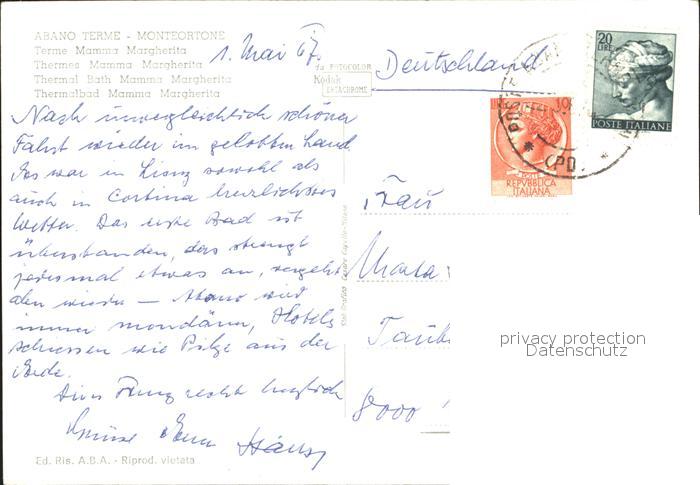 ABANO TERME - MONTEORTONE
Terme Mamma Margherita
Thermes Mamma Margherita
Thermal Bath Mamma Margherita
Thermalbad Mamma Margherita
1. Mai 67.
FOTOCOLOR
Kodak
EKTACHROME
Deutschland
20
LIRE
POSTE ITALIANE
30
REPVBBLICA
ITALIANA
(PD)
Nach unvergleichlich schöner
Fahrt wieder im gelobten Land
Es war in Lienz sowohl als
auch in Cortina herrlichstes
Wetter. Das erste Bad ist
überstanden, das strengt
jedesmal etwas an, vergeht
aber wieder — Abano wird
immer mondäner, Hotels
schiessen wie Pilze aus der
Erde.
recht herzlich
Grüsse
Frau
8000
Ed. Ris. A.B.A. - Riprod. vietata
privacy protection
Datenschutz